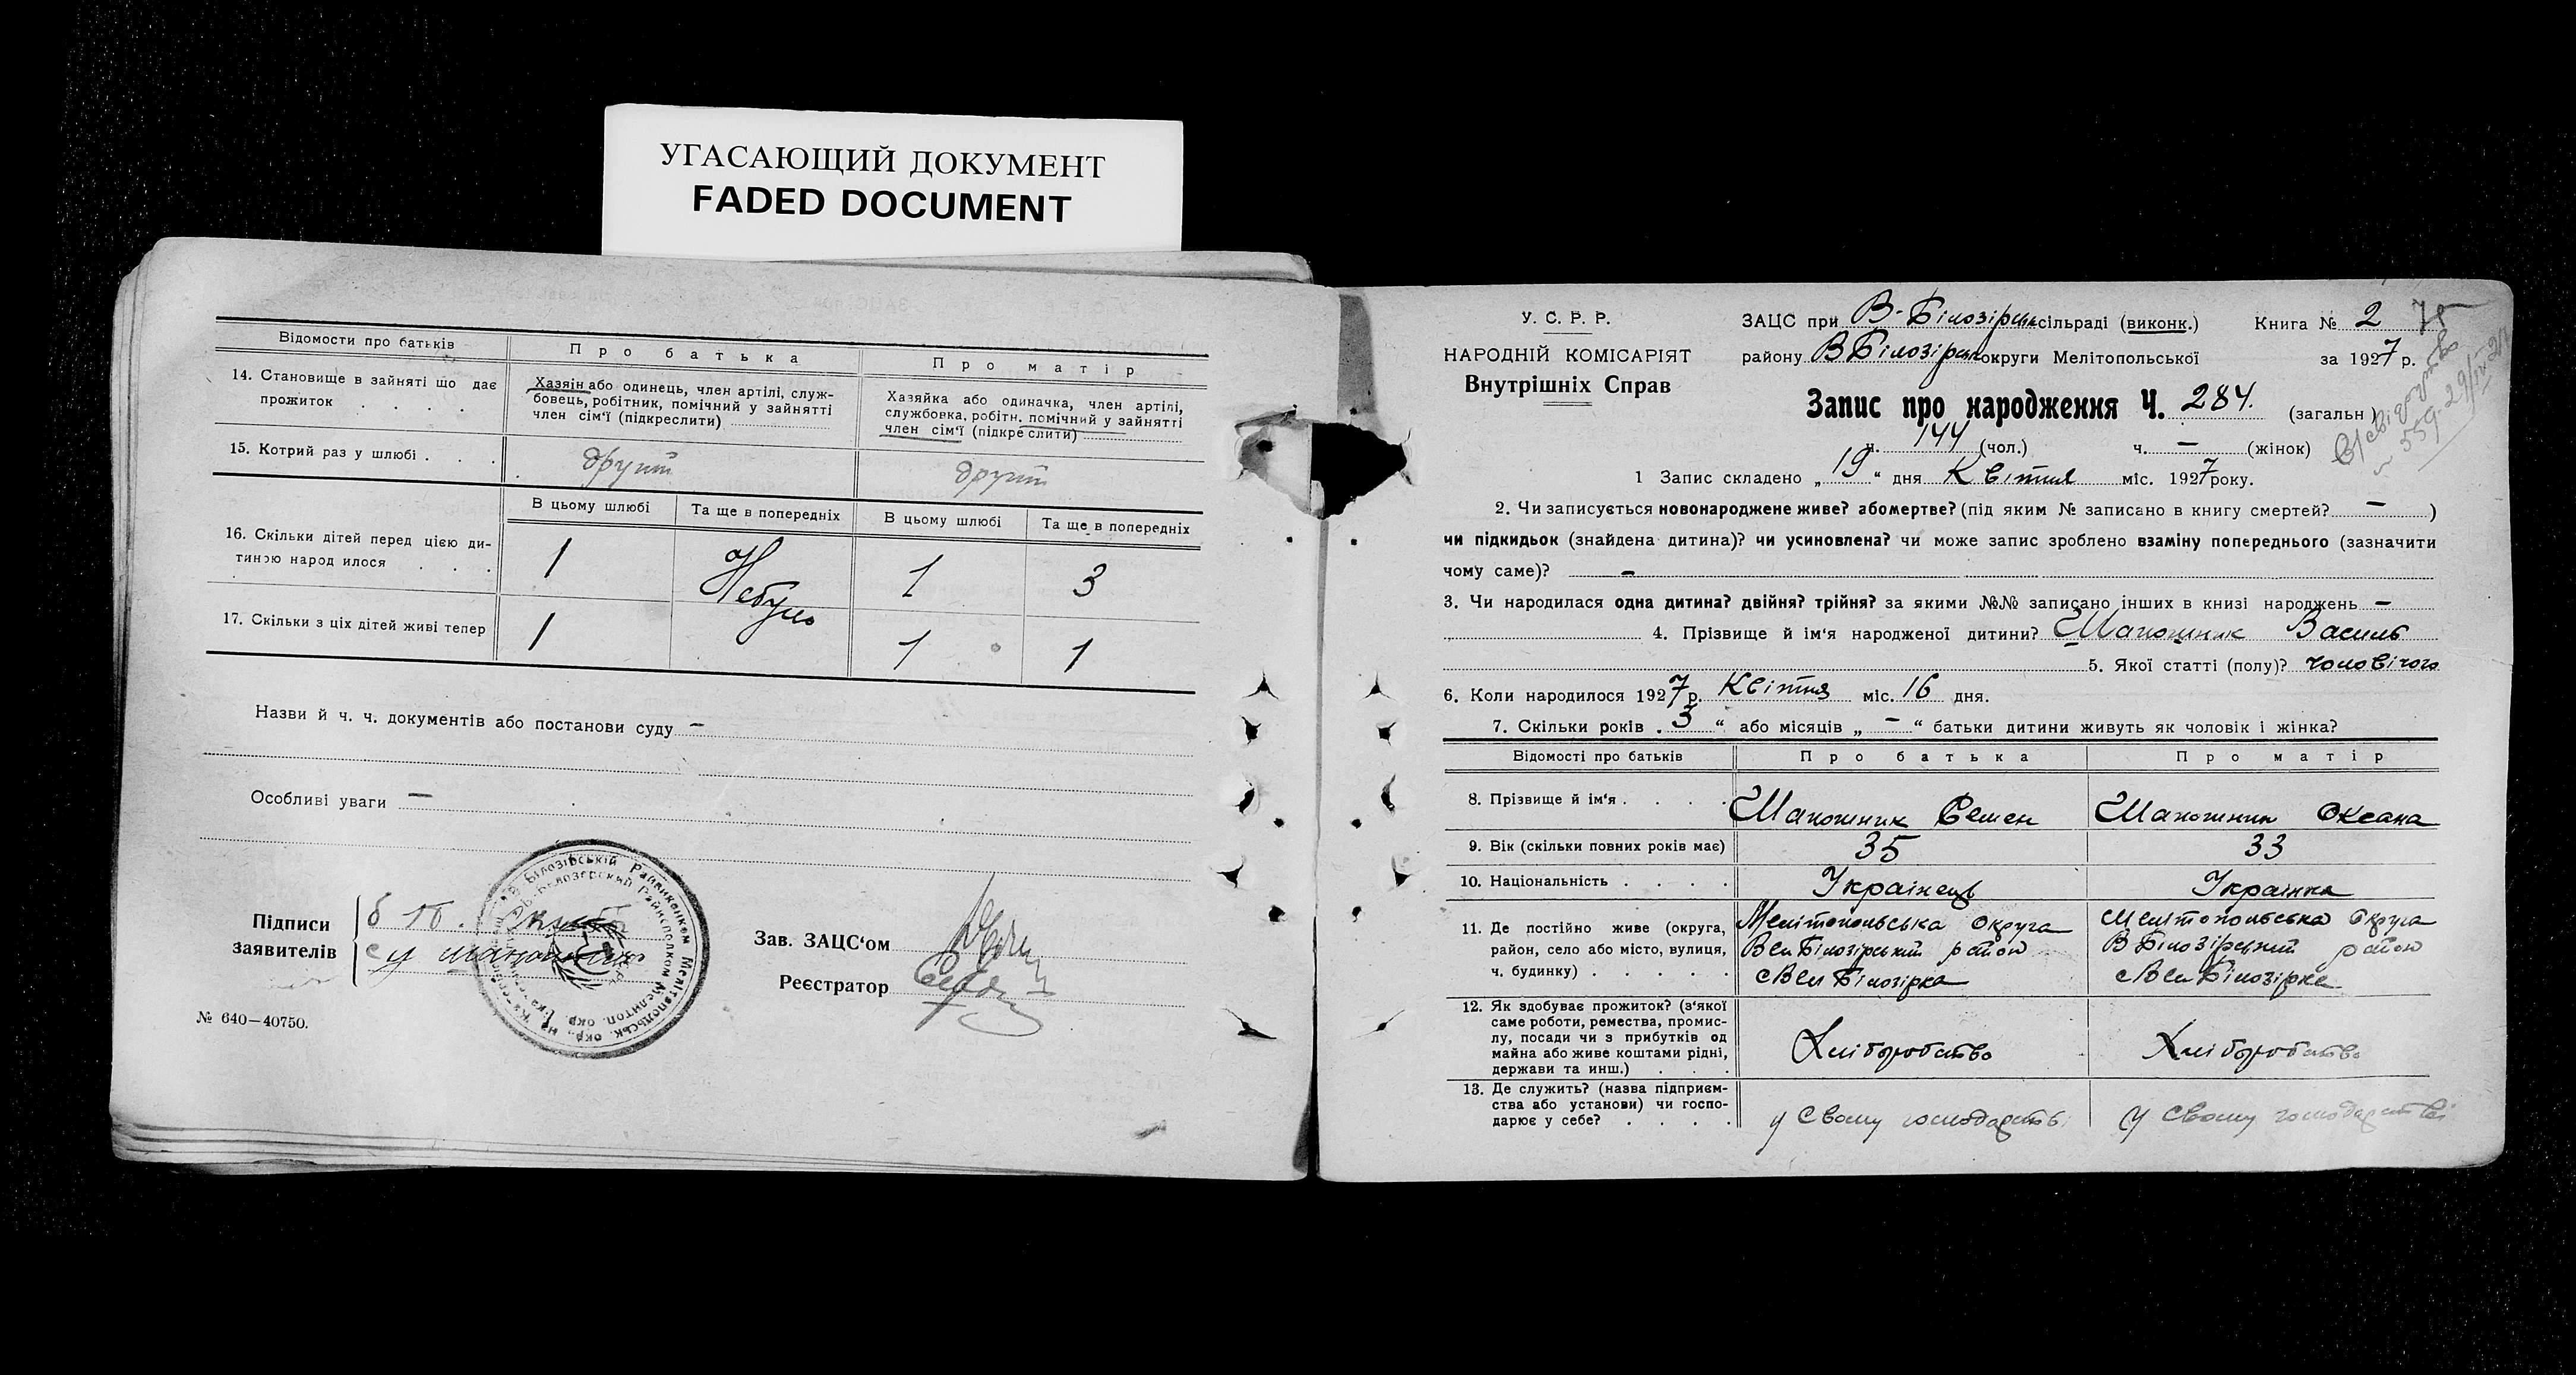 УГАСАЮЩИЙ ДОКУМЕНТ
FADED DOCUMENT
Відомости про батьків
Про батька
Про матір
14. Становище в зайняті що дає
прожиток . . . .
Хазяін або одинець, член артілі, служ-
бовець, робітник, помічний у зайнятті
член сім'ї (підкреслити)
Хазяйка або одиначка, член артілі,
службовка, робітн. помічний у зайнятті
член сім'ї (підкреслити)
15. Котрий раз у шлюбі . . .
другий
другий
В цьому шлюбі
Та ще в попередніх
В цьому шлюбі
Та ще в попередніх
16. Скільки дітей перед цією ди-
тиною народилося . . .
1
Небуло
1
3
17. Скільки з ціх дітей живі тепер
1
1
1
Назви й ч. ч. документів або постанови суду —
Особливі уваги —
Підписи
заявителів
Зав. ЗАЦС'ом
Реєстратор
№ 640—40750.
У. С. Р. Р.
НАРОДНІЙ КОМІСАРІЯТ
Внутрішніх Справ
ЗАЦС при В-Білозірськ сільраді (виконк.)
Книга № 2
75
району ВБілозірськ округи Мелітопольської
за 1927 р.
Запис про народження Ч. 284. (загальн)
ч. 144 (чол.)
ч. — (жінок)
1 Запис складено „19“ дня Квітня міс. 1927 року.
2. Чи записується новонароджене живе? або мертве? (під яким № записано в книгу смертей? — )
чи підкидьок (знайдена дитина)? чи усиновлена? чи може запис зроблено взаміну попереднього (зазначити
чому саме)? —
3. Чи народилася одна дитина? двійня? трійня? за якими №№ записано інших в книзі народжень —
4. Прізвище й ім'я народженої дитини? Шапошник Василь
5. Якої статті (полу)? чоловічого
6. Коли народилося 1927 р. Квітня міс. 16 дня.
7. Скільки років „3“ або місяців „—“ батьки дитини живуть як чоловік і жінка?
Відомості про батьків
Про батька
Про матір
8. Прізвище й ім'я . . . .
Шапошник Семен
Шапошник Оксана
9. Вік (скільки повних років має)
35
33
10. Національність . . . .
Українець
Українка
11. Де постійно живе (округа,
район, село або місто, вулиця,
ч. будинку) . . . . .
Мелітопольська округа
Вел Білозірський район
с Вел Білозірка
Мелітопольська округа
В Білозірський район
с Вел Білозірка
12. Як здобуває прожиток? (з'якої
саме роботи, ремества, промис-
лу, посади чи з прибутків од
майна або живе коштами рідні,
держави та инш.) . . .
Хліборобство
Хліборобство
13. Де служить? (назва підприєм-
ства або установи) чи госпо-
дарює у себе? . . . .
у Свому господарстві
у Свому господарстві